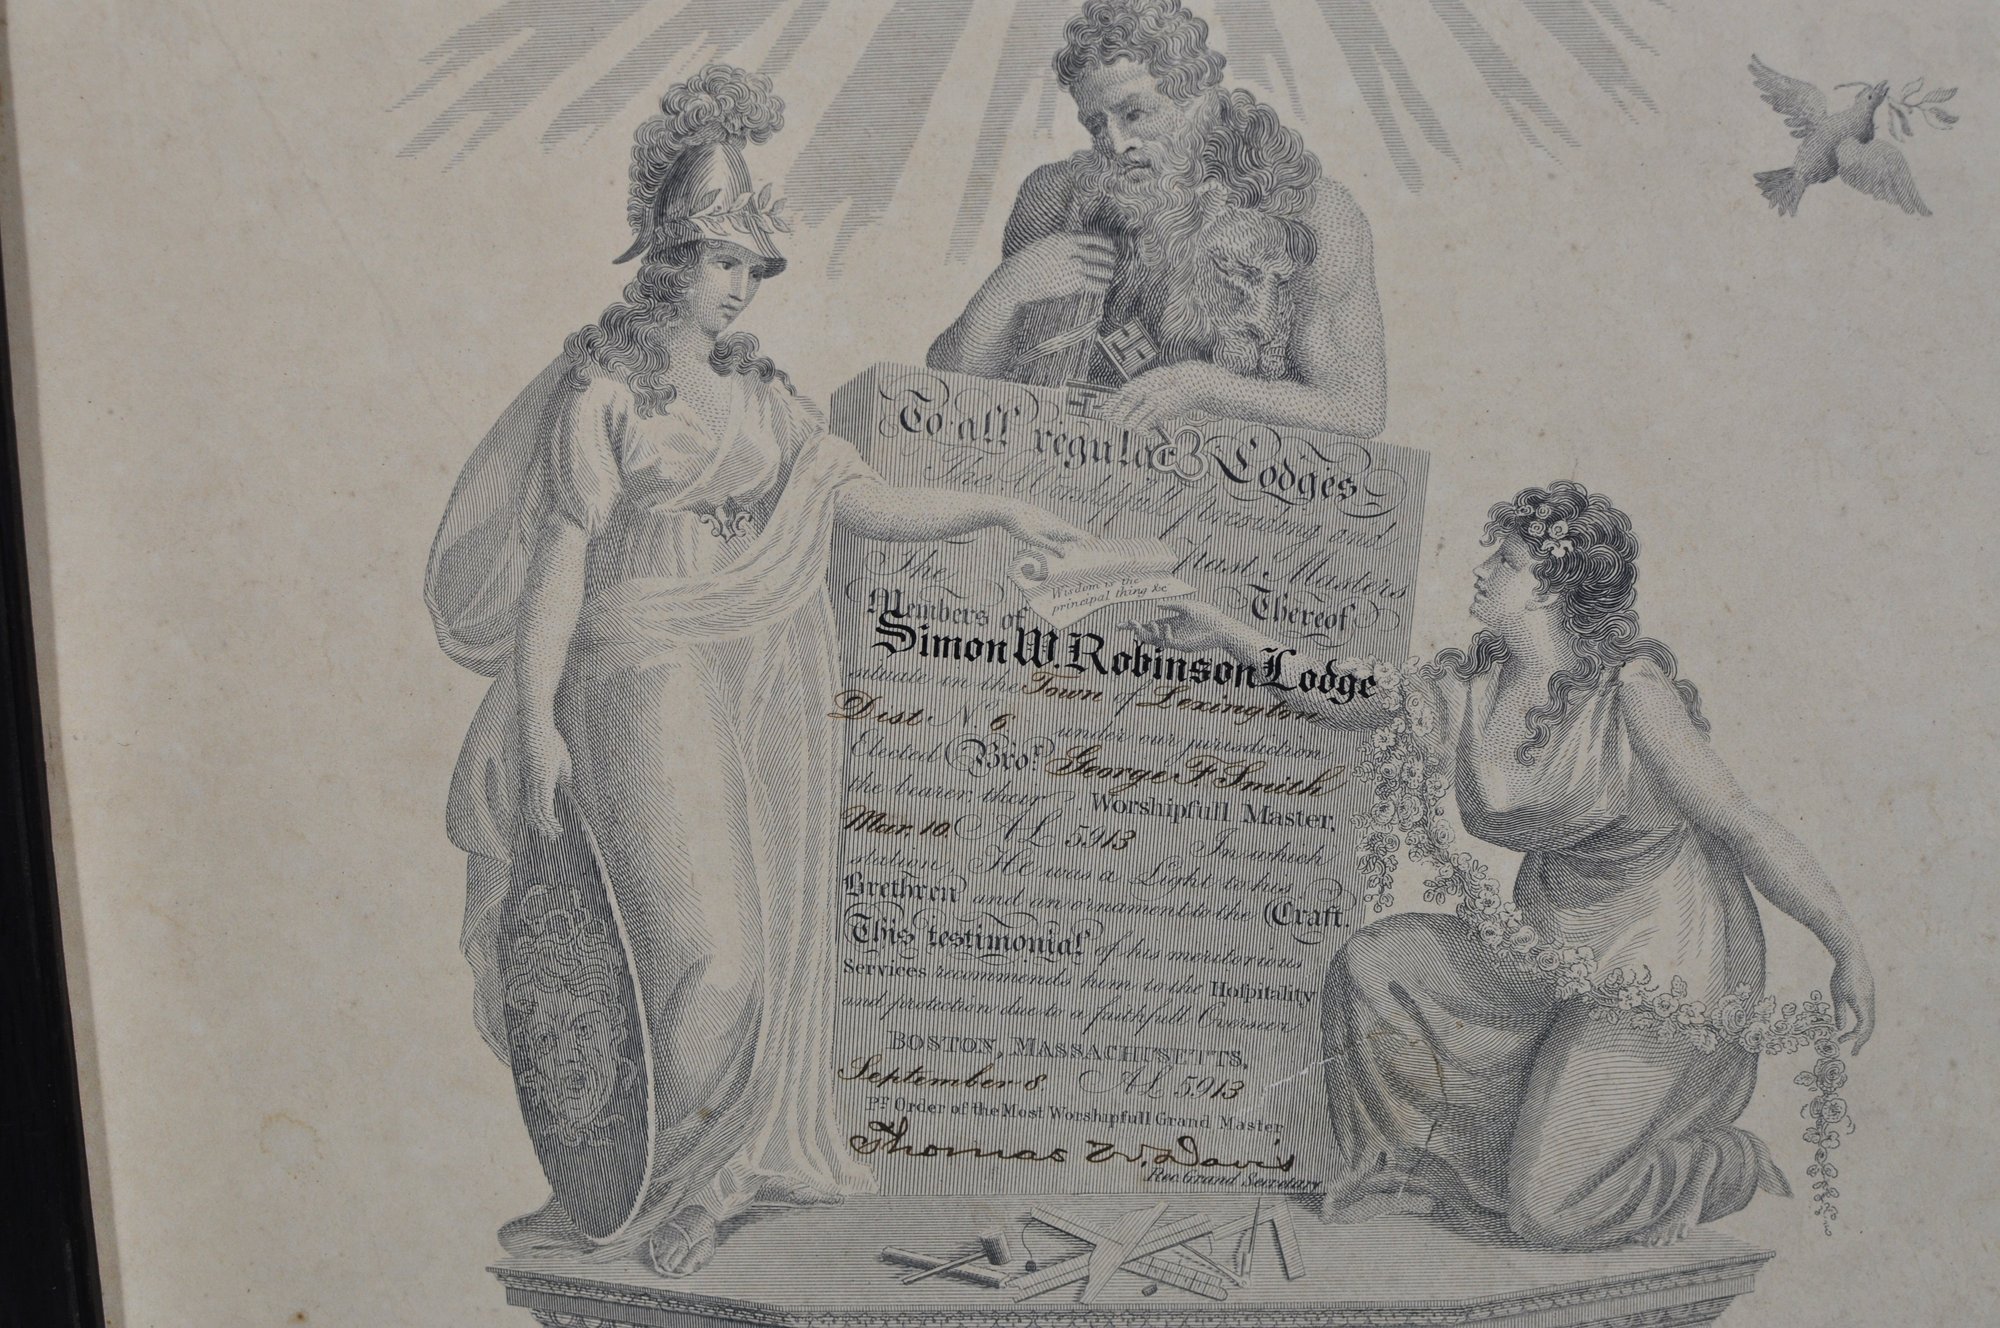 To all regular Lodges
The Worshipfull presiding and
past Masters
The Thereof
Wisdom is the
principal thing &c
Members of
Simon W. Robinson Lodge
situate in the Town of Lexington
Dist. No. 6 under our jurisdiction
Elected Bror. George F. Smith
the bearer, their Worshipfull Master,
Mar. 10 AL 5913 In which
station, He was a Light to his
Brethren and an ornament to the Craft.
This testimonial of his meritorious
Services recommends him to the Hoſpitality
and protection due to a faithfull Overseer
BOSTON, MASSACHUSETTS,
September 8 AL 5913
Pr Order of the Most Worshipfull Grand Master
Thomas W. Davis
Rec. Grand Secretary